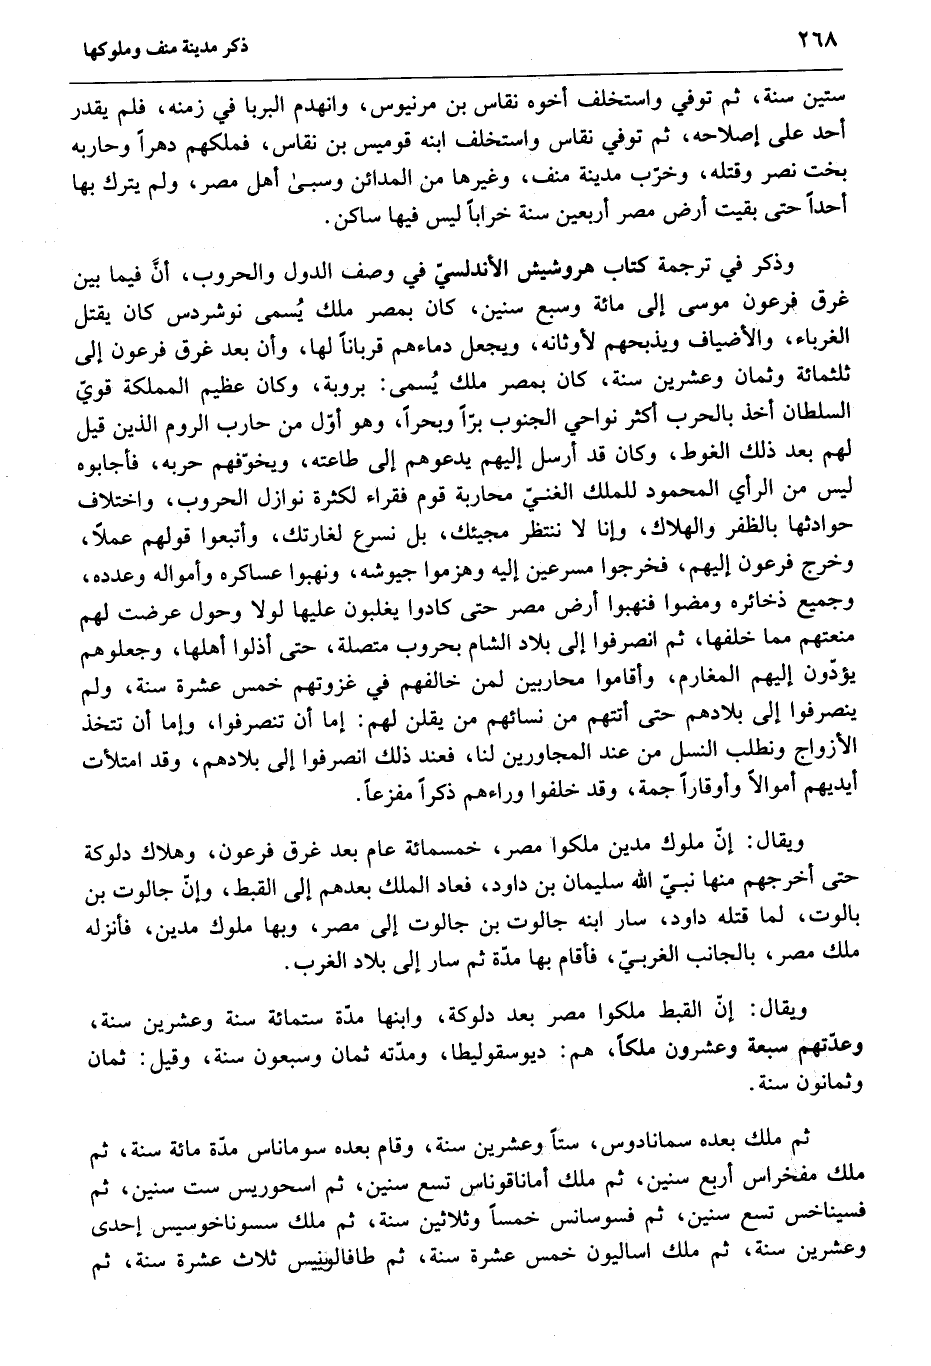 ٢٦٨
ذكر مدينة منف وملوكها
ستين سنة، ثم توفي واستخلف أخوه نقاس بن مرنيوس، وانهدم البربا في زمنه، فلم يقدر
أحد على إصلاحه، ثم توفي نقاس واستخلف ابنه قوميس بن نقاس، فملكهم دهراً وحاربه
بخت نصر وقتله، وخرّب مدينة منف، وغيرها من المدائن وسبىٰ أهل مصر، ولم يترك بها
أحداً حتى بقيت أرض مصر أربعين سنة خراباً ليس فيها ساكن.
وذكر في ترجمة كتاب هروشيش الأندلسيّ في وصف الدول والحروب، أنَّ فيما بين
غرق فرعون موسى إلى مائة وسبع سنين، كان بمصر ملك يُسمى نوشردس كان يقتل
الغرباء، والأضياف ويذبحهم لأوثانه، ويجعل دماءهم قرباناً لها، وأن بعد غرق فرعون إلى
ثلثمائة وثمان وعشرين سنة، كان بمصر ملك يُسمى: بروبة، وكان عظيم المملكة قويّ
السلطان أخذ بالحرب أكثر نواحي الجنوب برّاً وبحراً، وهو أوّل من حارب الروم الذين قيل
لهم بعد ذلك الغوط، وكان قد أرسل إليهم يدعوهم إلى طاعته، ويخوّفهم حربه، فأجابوه
ليس من الرأي المحمود للملك الغنيّ محاربة قوم فقراء لكثرة نوازل الحروب، واختلاف
حوادثها بالظفر والهلاك، وإنا لا ننتظر مجيئك، بل نسرع لغارتك، وأتبعوا قولهم عملاً،
وخرج فرعون إليهم، فخرجوا مسرعين إليه وهزموا جيوشه، ونهبوا عساكره وأمواله وعدده،
وجميع ذخائره ومضوا فنهبوا أرض مصر حتى كادوا يغلبون عليها لولا وحول عرضت لهم
منعتهم مما خلفها، ثم انصرفوا إلى بلاد الشام بحروب متصلة، حتى أذلوا أهلها، وجعلوهم
يؤدّون إليهم المغارم، وأقاموا محاربين لمن خالفهم في غزوتهم خمس عشرة سنة، ولم
ينصرفوا إلى بلادهم حتى أتتهم من نسائهم من يقلن لهم: إما أن تنصرفوا، وإما أن تتخذ
الأزواج ونطلب النسل من عند المجاورين لنا، فعند ذلك انصرفوا إلى بلادهم، وقد امتلأت
أيديهم أموالاً وأوقاراً جمة، وقد خلفوا وراءهم ذكراً مفزعاً.
ويقال: إنّ ملوك مدين ملكوا مصر، خمسمائة عام بعد غرق فرعون، وهلاك دلوكة
حتى أخرجهم منها نبيّ الله سليمان بن داود، فعاد الملك بعدهم إلى القبط، وإنّ جالوت بن
بالوت، لما قتله داود، سار ابنه جالوت بن جالوت إلى مصر، وبها ملوك مدين، فأنزله
ملك مصر، بالجانب الغربيّ، فأقام بها مدّة ثم سار إلى بلاد الغرب.
ويقال: إنّ القبط ملكوا مصر بعد دلوكة، وابنها مدّة ستمائة سنة وعشرين سنة،
وعدّتهم سبعة وعشرون ملكاً، هم: ديوسقوليطا، ومدّته ثمان وسبعون سنة، وقيل: ثمان
وثمانون سنة.
ثم ملك بعده سمانادوس، ستاً وعشرين سنة، وقام بعده سوماناس مدّة مائة سنة، ثم
ملك مفخراس أربع سنين، ثم ملك أماناقوناس تسع سنين، ثم اسحوريس ست سنين، ثم
فسيناخس تسع سنين، ثم فسوسانس خمساً وثلاثين سنة، ثم ملك سسوناخوسيس إحدى
وعشرين سنة، ثم ملك اساليون خمس عشرة سنة، ثم طافالوينيس ثلاث عشرة سنة، ثم